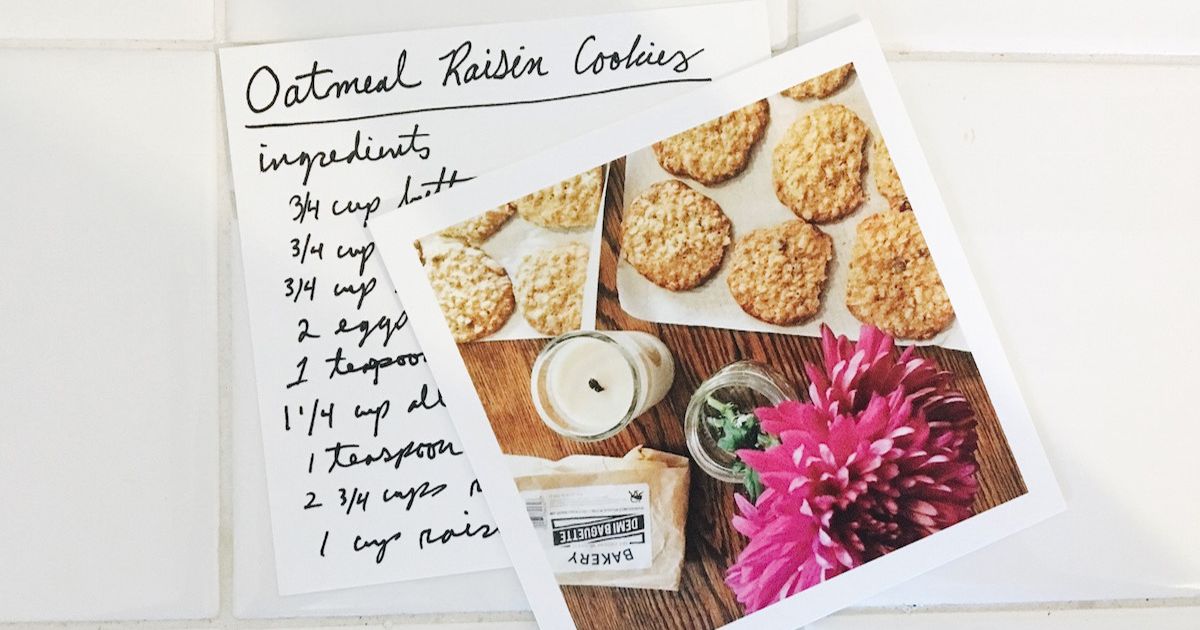 Oatmeal Raisin Cookies
ingredients
3/4 cup
3/4 cup
3/4 cup
2 eggs
1 teaspoon
1 1/4 cup all
1 teaspoon
2 3/4 cups
1 cup rais
BAKERY
DEMI BAGUETTE